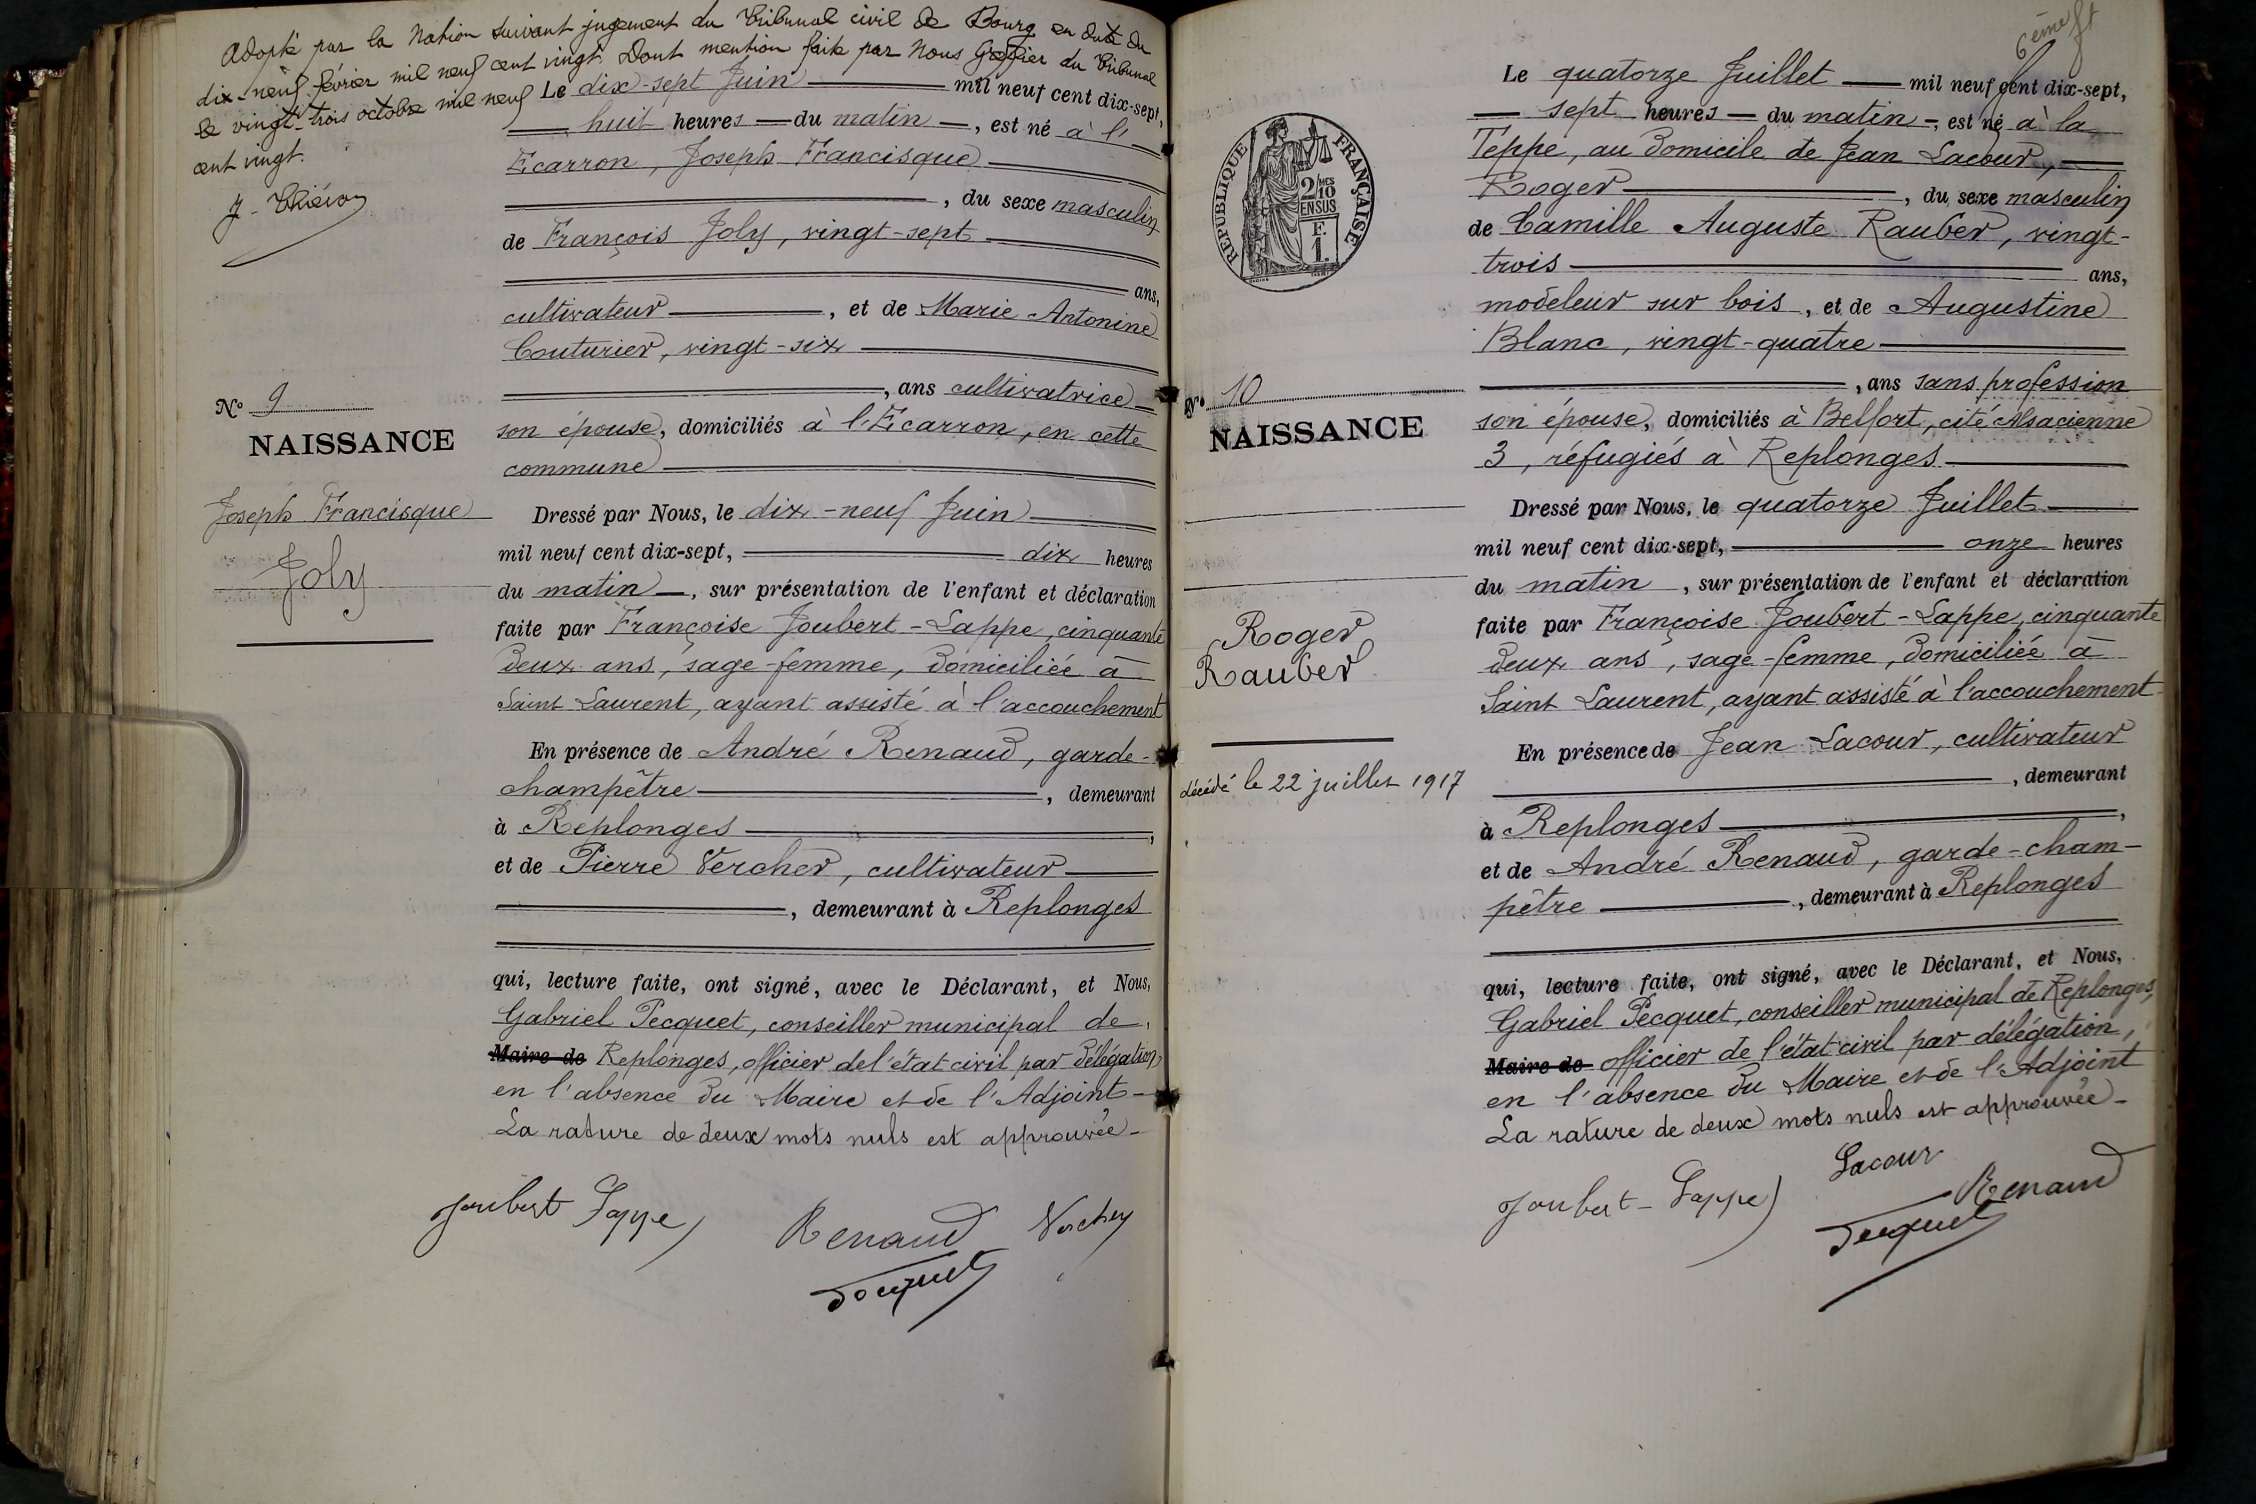 Adopté par la Nation suivant jugement du Tribunal civil de Bourg en date du
dix-neuf février mil neuf cent vingt. Dont mention faite par Nous Greffier du Tribunal
le vingt-trois octobre mil neuf
cent vingt.
Le dix-sept Juin mil neuf cent dix-sept,
huit heures du matin, est né à l'
Ecarron, Joseph Francisque
, du sexe masculin
de François Joly, vingt-sept
ans,
cultivateur, et de Marie Antonine
Couturier, vingt-six
, ans cultivatrice
son épouse, domiciliés à l'Ecarron, en cette
commune
N° 9
NAISSANCE
Joseph Francisque
Joly
Dressé par Nous, le dix-neuf Juin
mil neuf cent dix-sept, dix heures
du matin, sur présentation de l'enfant et déclaration
faite par Françoise Joubert-Lappe, cinquante
deux ans, sage-femme, domiciliée à
Saint Laurent, ayant assisté à l'accouchement
En présence de André Renaud, garde-
champêtre, demeurant
à Replonges,
et de Pierre Vercher, cultivateur
, demeurant à Replonges
qui, lecture faite, ont signé, avec le Déclarant, et Nous,
Gabriel Pecquet, conseiller municipal de
Maire de Replonges, officier de l'état civil par délégation,
en l'absence du Maire et de l'Adjoint-
La rature de deux mots nuls est approuvée-
Joubert Lappe
Renaud
Vercher
Pecquet
6ème ft
Le quatorze Juillet mil neuf cent dix-sept,
sept heures du matin, est né à la
Teppe, au domicile de Jean Lacour,
Roger, du sexe masculin
de Camille Auguste Rauber, vingt-
trois ans,
modeleur sur bois, et de Augustine
Blanc, vingt-quatre
, ans sans profession
son épouse, domiciliés à Belfort, cité Alsacienne
3, réfugiés à Replonges
RÉPUBLIQUE FRANÇAISE
2/10 MES
EN SUS
F.
1.
N° 10
NAISSANCE
Roger
Rauber
décédé le 22 juillet 1917
Dressé par Nous, le quatorze Juillet
mil neuf cent dix-sept, onze heures
du matin, sur présentation de l'enfant et déclaration
faite par Françoise Joubert-Lappe, cinquante
deux ans, sage-femme, domiciliée à
Saint Laurent, ayant assisté à l'accouchement
En présence de Jean Lacour, cultivateur
, demeurant
à Replonges,
et de André Renaud, garde-cham-
pêtre, demeurant à Replonges
qui, lecture faite, ont signé, avec le Déclarant, et Nous,
Gabriel Pecquet, conseiller municipal de Replonges,
Maire de officier de l'état civil par délégation,
en l'absence du Maire et de l'Adjoint
La rature de deux mots nuls est approuvée-
Lacour
Joubert-Lappe
Renaud
Pecquet